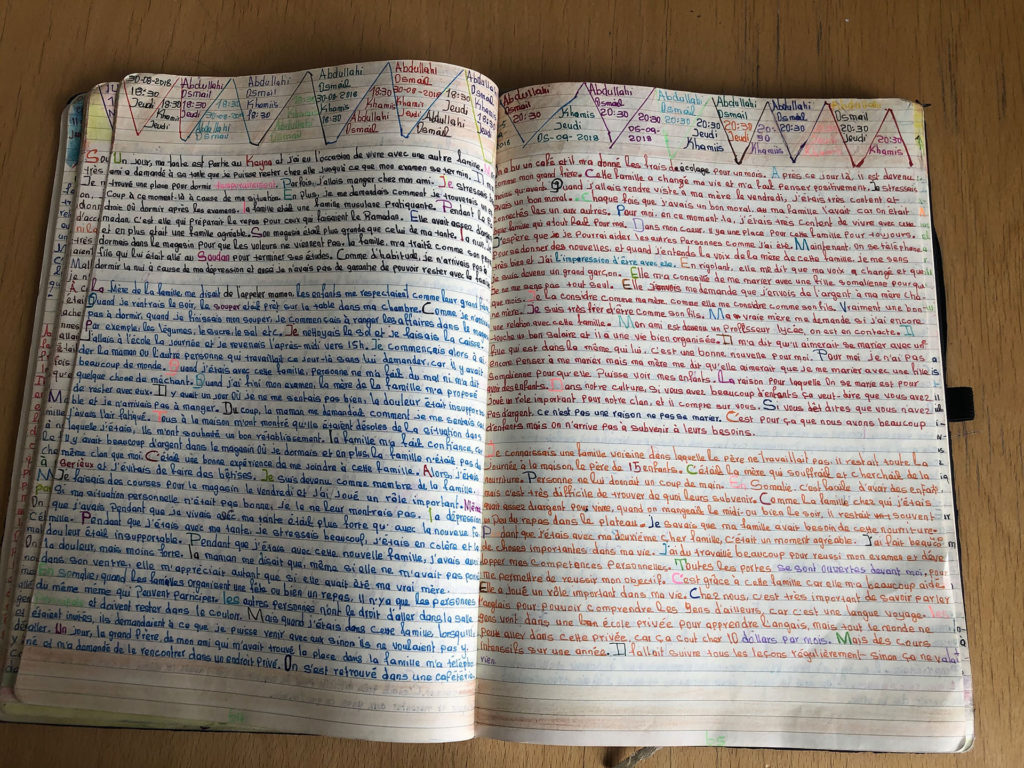 30-08-2018 Abdullahi Osmail Abdullahi Osmail Abdullahi Osmail Abdullahi Osmail
18:30 Jeudi 18:30 Khamis 30-08-2018 18:30 Khamis Jeudi
Un jour, ma tante est partie au Kenya et j'ai eu l'occasion de vivre avec une autre famille
ami a demandé à sa tante que je puisse rester chez elle jusqu'à ce que mon examen se termin
trouvé une place pour dormir temporairement. Parfois, j'allais manger chez mon ami. Je stressais
Coup à ce moment-là à cause de ma situation. En plus, je me demandais comment je trouverais
droit où dormir après les examens. La famille était une famille musulmane pratiquante. Pendant le
madan, c'est elle qui préparait le repas pour ceux qui faisaient le Ramadan. Elle avait assez d'argent
et en plus était une famille agréable. Son magasin était plus grande que celui de ma tante. la nuit, je
dormais dans le magasin pour que les voleurs ne viennent pas. la famille m'a traité comme son
fils qui lui était allé au Soudan pour terminer ses études. Comme d'habitude, je n'arrivais pas à
dormir la nuit à cause de ma dépression et aussi je n'avais pas de garantie de pouvoir rester avec la famille
La mère de la famille me disait de l'appeler maman. les enfants me respectaient comme leur grand frère
Quand je rentrais le soir, le souper était prêt sur la table dans ma chambre. Comme je n'arrivais
pas à dormir, quand je finissais mon souper, je commençais à ranger les affaires dans le mag
Par exemple: les légumes, le sucre, le sel etc. Je nettoyais le sol et je faisais la caisse.
J'allais à l'école la journée et je revenais l'après-midi vers 15h. Je commençais alors à ai
der la maman ou l'autre personne qui travaillait ce jour-là sans lui demander car il y avait
beaucoup de monde. Quand j'étais avec cette famille, personne ne m'a fait du mal ni m'a dit
quelque chose de méchant. Quand j'ai fini mon examen, la mère de la famille m'a proposé
de rester avec eux. Il y avait un jour où je ne me sentais pas bien, la douleur était insupporta
ble et je n'arrivais pas à manger. Du coup, la maman me demandait comment je me sentais car
j'avais l'air fatigué. Tous à la maison m'ont montré qu'ils étaient désolés de la situation dans
laquelle j'étais. Ils m'ont souhaité un bon rétablissement. la famille m'a fait confiance, car
il y avait beaucoup d'argent dans le magasin où je dormais et en plus, la famille n'était pas de
même clan que moi. C'était une bonne expérience de me joindre à cette famille. Alors, j'étais
sérieux et j'évitais de faire des bêtises. Je suis devenu comme membre de la famille.
Je faisais des courses pour le magasin le vendredi et j'ai joué un rôle important. Même
si ma situation personnelle n'était pas bonne, je ne le leur montrais pas. la dépression
que j'avais pendant que je vivais avec ma tante était plus forte qu'avec la nouvelle fa
mille. Pendant que j'étais avec ma tante, je stressais beaucoup, j'étais en colère et la
douleur était insupportable. Pendant que j'étais avec cette nouvelle famille, j'avais aussi
la douleur, mais moins forte. la maman me disait que, même si elle ne m'avait pas porté
dans son ventre, elle m'appréciait autant que si elle avait été ma vraie mère.
En Somalie, quand les familles organisent une fête ou bien un repas, il n'y a que les personnes
du même clan qui peuvent participer. les autres personnes n'ont le droit d'aller dans la salle
et doivent rester dans le couloir. Mais quand j'étais dans cette famille, lorsqu'ils
étaient invités, ils demandaient à ce que je puisse venir avec eux sinon ils ne voulaient pas y
aller. Un jour, le grand frère de mon ami qui m'avait trouvé la place dans la famille m'a télépho
né et m'a demandé de le rencontrer dans un endroit privé. On s'est retrouvé dans une cafétéria
Abdullahi Osmail 20:30 Abdullahi Osmail 20:30 Abdullahi 20:30 Abdullahi Osmail 20:30 Abdullahi Osmail
Khamis Jeudi 05-09-2018 20:30 05-09-2018 20:30 Jeudi Khamis 20:30 Khamis
a bu un café et il m'a donné les frais de écolage pour un mois. Après ce jour là, il est devenu
comme mon grand frère. Cette famille a changé ma vie et m'a fait penser positivement. Je stressais
qu'avant. Quand j'allais rendre visite à ma mère le vendredi, j'étais très content et
un bon moral. Chaque fois que j'avais un bon moral, de ma famille l'avait car on était
connectés les un aux autres. Pour moi, en ce moment-là, j'étais très content de vivre avec cette
famille qui a tout fait pour moi. Dans mon cœur, il y a une place pour cette famille pour toujours.
J'espère que je pourrai aider les autres personnes comme j'ai été. Maintenant, on se téléphone
pour se donner des nouvelles, et quand j'entends la voix de la mère de cette famille, je me sens
très bien et j'ai l'impression d'être avec elle. En rigolant, elle me dit que ma voix a changé et que
je suis devenu un grand garçon. Elle m'a conseillé de me marier avec une fille somalienne pour que
ne sens pas tout seul. Elle me demande que j'envoie de l'argent à ma mère cha
que mois. Je la considère comme ma mère, comme elle me considère comme son fils. Vraiment, une bon
mère. Je suis très fier d'être comme son fils. Ma vraie mère me demande si j'ai encore
une relation avec cette famille. Mon ami est devenu un professeur lycée, on est en contacte. Il
touche un bon salaire et il a une vie bien organisée. Il m'a dit qu'il aimerait se marier avec une
fille qui est dans la même qui lui, c'est une bonne nouvelle pour moi. Pour moi, Je n'ai pas
encore penser à me marier, mais ma mère me dit qu'elle aimerait que je me marie avec une fille
Somalienne pour qu'elle puisse voir mes enfants. La raison pour laquelle on se marie est pour
des enfants. Dans notre culture, si vous avez beaucoup d'enfants ça veut dire que vous avez
Joué un rôle important pour notre clan, et il compte sur vous. Si vous dites que vous n'avez
pas d'argent, ce n'est pas une raison ne pas se marier. C'est pour ça que nous avons beaucoup
d'enfants mais on n'arrive pas à subvenir à leurs besoins.
connaissais une famille voisine dans laquelle le père ne travaillait pas. il restait toute la
journée à la maison, le père de 15 enfants. C'était la mère qui souffrait en cherchait de la
nourriture. Personne ne lui donnait un coup de main. En Somalie, c'est facile d'avoir des enfants
mais c'est très difficile de trouver de quoi leurs subvenir. Comme la famille chez qui j'étais
avait assez d'argent pour vivre, quand on mangeait le midi ou bien le soir, il restait souvent
peu du repas dans le plateau. Je savais que ma famille avait besoin de cette nourriture.
Pendant que j'étais avec ma deuxième cher famille, c'était un moment agréable. J'ai fait beaucoup
de choses importantes dans ma vie. J'ai du travailler beaucoup pour réussi mon examen et dével
opper mes compétences personnelles. Toutes les portes se sont ouvertes devant moi, pour
me permettre de réussir mon objectif. C'est grâce à cette famille car elle m'a beaucoup aidé.
Elle a joué un rôle important dans ma vie. Chez nous, c'est très important de savoir parler
anglais pour pouvoir comprendre les gens d'ailleurs, car c'est une langue voyage.
gens vont dans une bon école privée pour apprendre l'angais, mais tout le monde ne
peut aller dans cette privée, car ça coût cher 10 dollars par mois. Mais des cours
intensifs sur une année. Il fallait suivre tous les leçons régulièrement sinon ça ne valai
rien